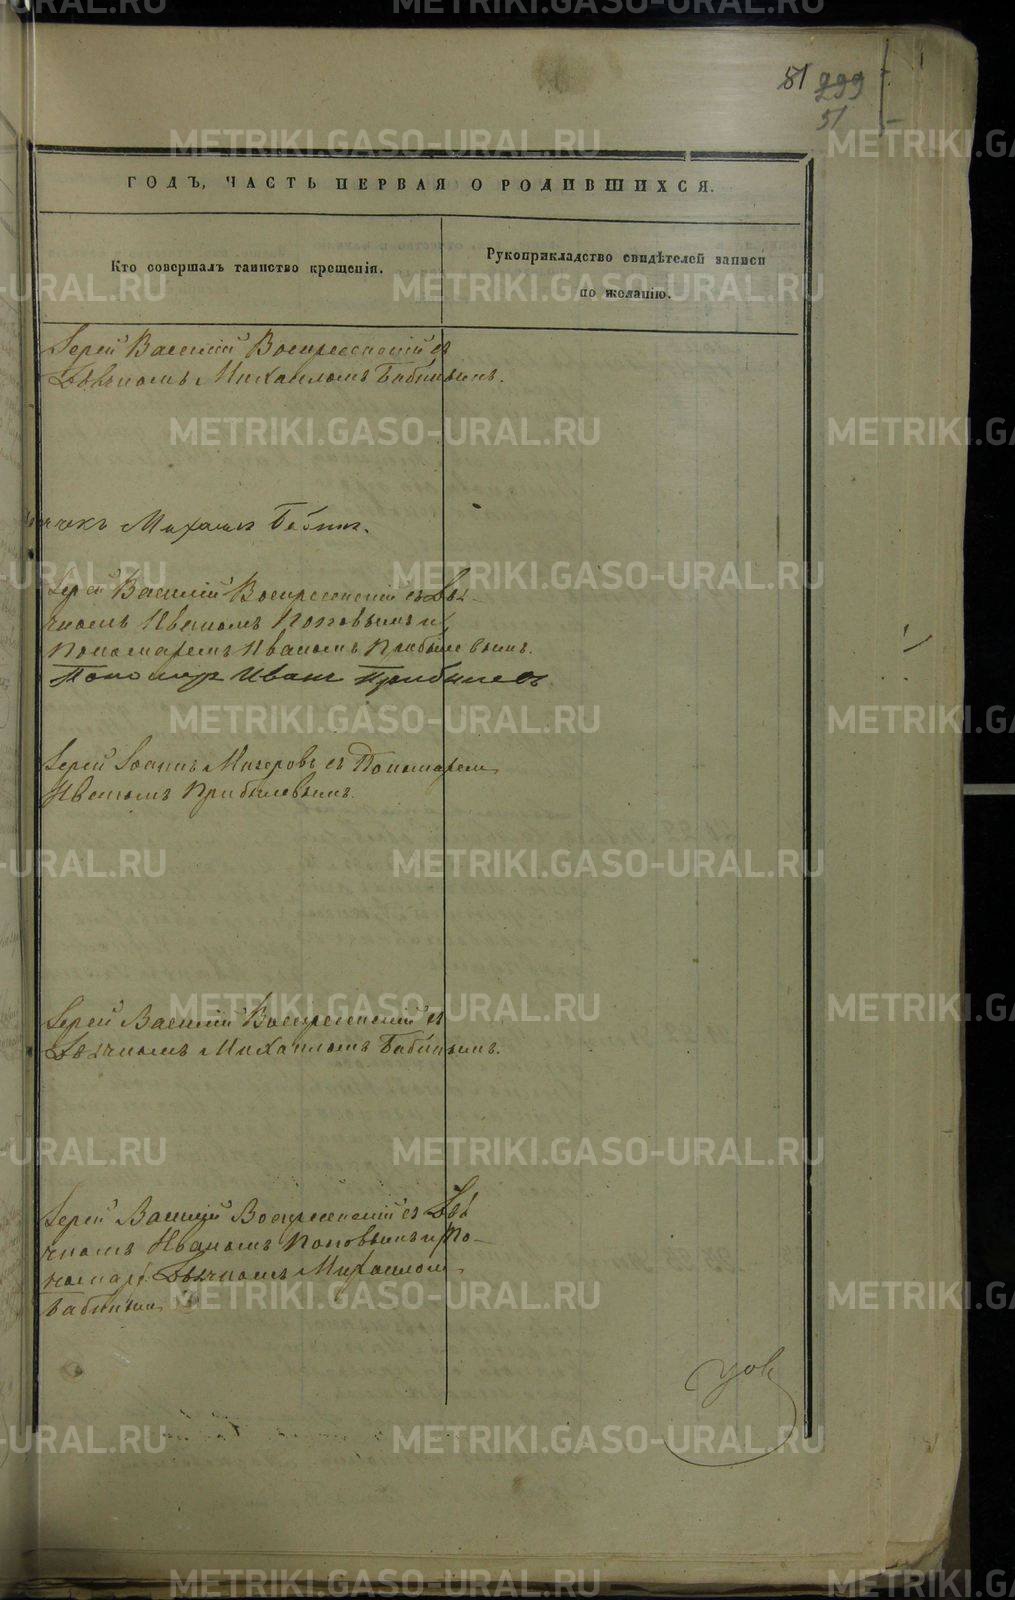 51 299
51
ГОДЪ, ЧАСТЬ ПЕРВАЯ О РОДИВШИХСЯ.
Кто совершалъ таинство крещенія.
Рукоприкладство свидѣтелей записи
по желанію.
Іерей Василій Воскресенскій съ
Дьячкомъ Михаиломъ Бабинымъ.
Михаилъ Бабинъ.
Іерей Василій Воскресенскій съ Дья-
чкомъ Иваномъ Поповымъ и
Пономаремъ Иваномъ Прибылевымъ.
Пономарь Иванъ Прибылевъ
Іерей Іоаннъ Мизеровъ съ Пономаремъ
Иваномъ Прибылевымъ.
Іерей Василій Воскресенскій съ
Дьячкомъ Михаиломъ Бабинымъ.
Іерей Василій Воскресенскій съ Дья
чкомъ Иваномъ Поповымъ и По-
номаре Дьячкомъ Михаиломъ
Бабинымъ
METRIKI.GASO-URAL.RU